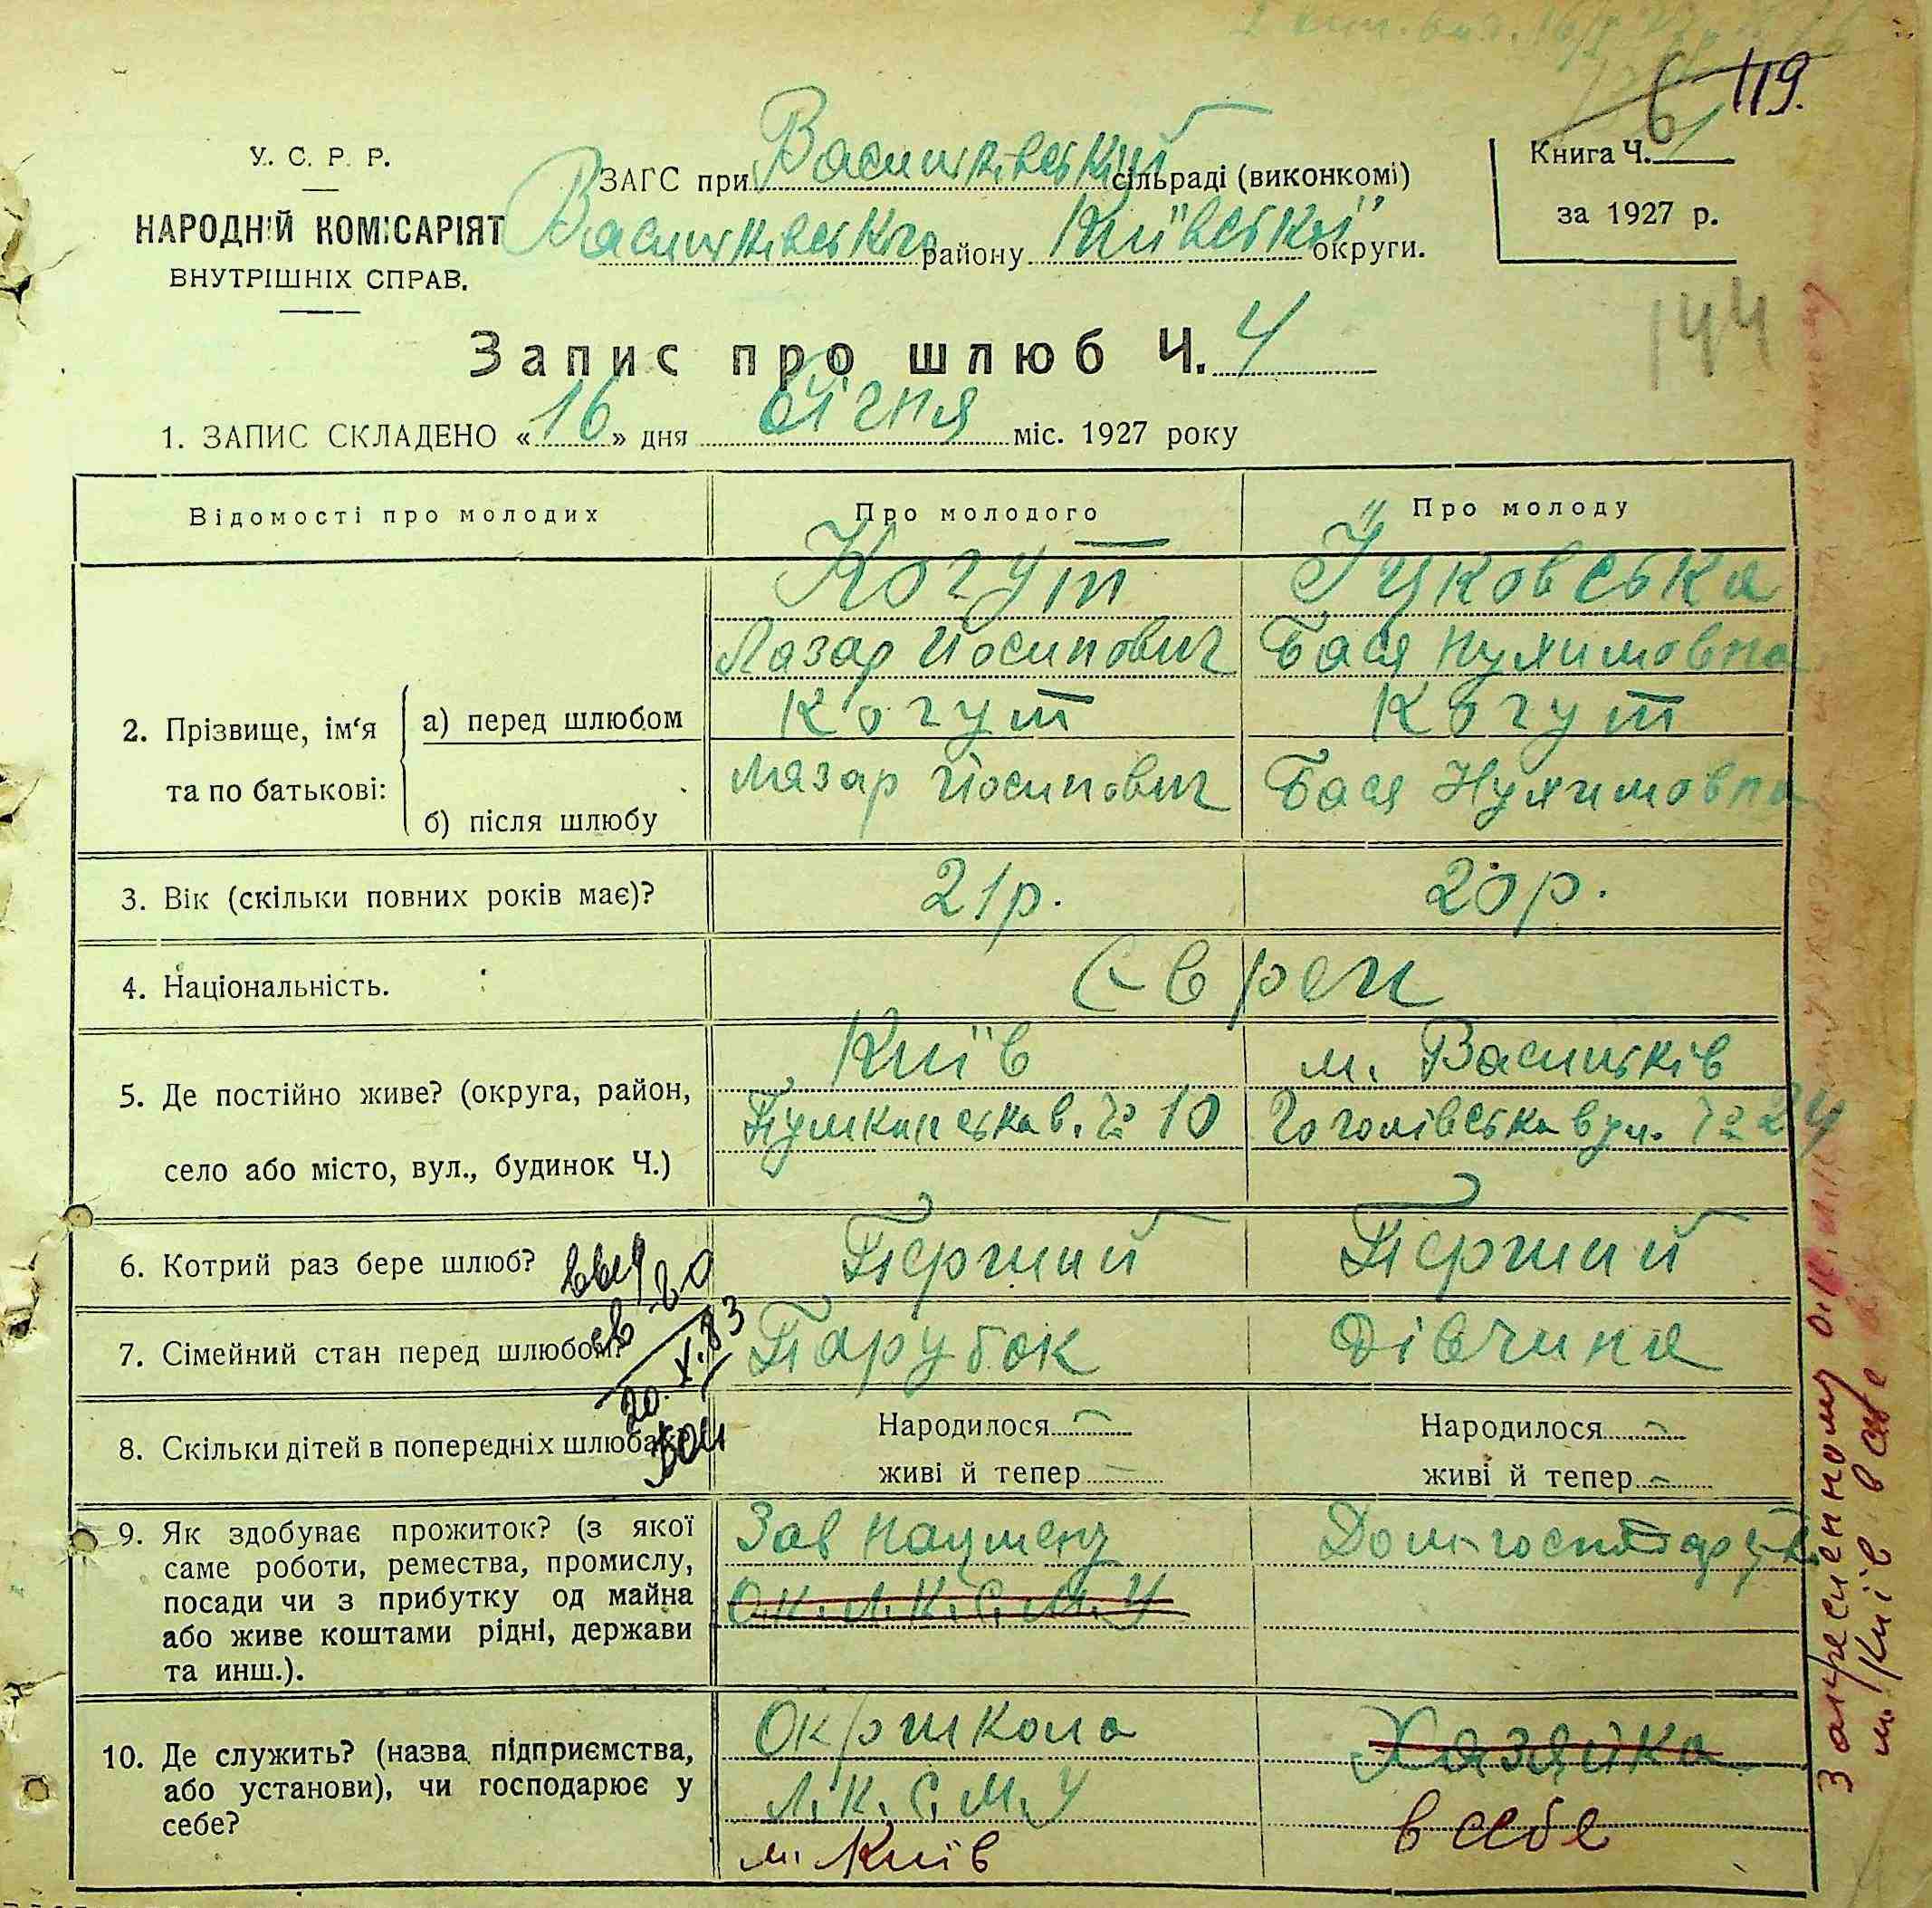 119.
6
У. С. Р. Р.
НАРОДНІЙ КОМІСАРІЯТ
ВНУТРІШНІХ СПРАВ.
ЗАГС при Васильківській сільраді (виконкомі)
Васильківського району Київської округи.
Книга Ч. 1
за 1927 р.
144
Запис про шлюб Ч. 4
1. ЗАПИС СКЛАДЕНО «16» дня січня міс. 1927 року
Відомості про молодих
Про молодого
Про молоду
2. Прізвище, ім'я та по батькові:
а) перед шлюбом
б) після шлюбу
Когут
Лазар Йосипович
Когут
Лазар Йосипович
Іцковська
Бася Нухимовна
Когут
Бася Нухимовна
3. Вік (скільки повних років має)?
21р.
20р.
4. Національність.
Євреи
5. Де постійно живе? (округа, район,
село або місто, вул., будинок Ч.)
Київ
Пушкинська в. № 10
м. Васильків
Гоголівська вул. № 24
6. Котрий раз бере шлюб?
Перший
Перший
7. Сімейний стан перед шлюбом?
Парубок
Дівчина
20.X.83
8. Скільки дітей в попередніх шлюбах
Народилося
живі й тепер
Народилося
живі й тепер
9. Як здобуває прожиток? (з якої
саме роботи, ремества, промислу,
посади чи з прибутку од майна
або живе коштами рідні, держави
та инш.).
Зав нацмену
О.К.Л.К.С.М.У
Дом-господарка
10. Де служить? (назва підприємства,
або установи), чи господарює у
себе?
Окршкола
Л.К.С.М.У
м. Київ
Хазяйка
в себе
Закресленному О.К.Л.К.
м. Київ в себе